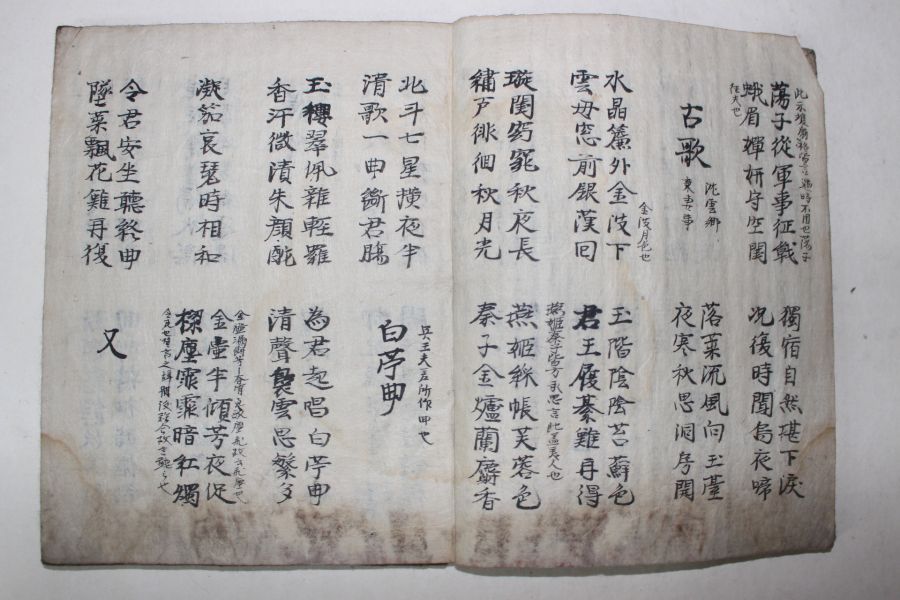 蕩子從軍事征戰
蛾眉嬋妍守空閨
狂夫也
獨宿自然堪下淚
況復時聞烏夜啼
古歌
沈雲卿
落葉流風向玉臺
夜寒秋思洞房開
水晶簾外金波下
雲母窓前銀漢回
金波月色也
玉階陰陰苔蘚色
君王履綦難再得
璇閨窈窕秋夜長
繡戶徘徊秋月光
燕姬綵帳芙蓉色
秦子金爐蘭麝香
北斗七星橫夜半
清歌一曲斷君腸
吳王夫差所作曲也
白苧曲
玉纓翠佩雜輕羅
香汗微漬朱顏酡
為君起唱白苧曲
清聲裊雲思繁多
凝笳哀瑟時相和
金壷半傾芳夜促
樑塵霏霏暗紅燭
令君安坐聽終曲
墜葉飄花難再復
又